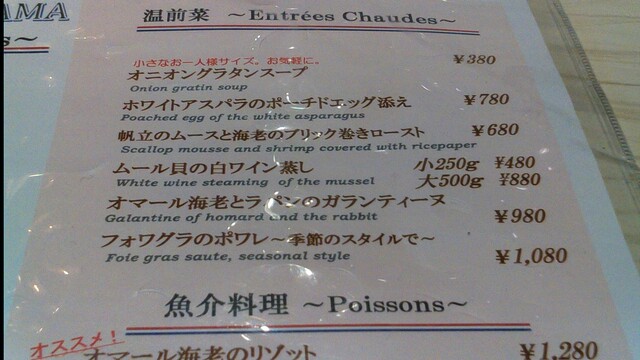 AMA
温前菜 ～Entrées Chaudes～
s～
小さなお一人様サイズ。お気軽に。 ¥380
オニオングラタンスープ
Onion gratin soup
ホワイトアスパラのポーチドエッグ添え ¥780
Poached egg of the white asparagus
帆立のムースと海老のブリック巻きロースト ¥680
Scallop mousse and shrimp covered with ricepaper
ムール貝の白ワイン蒸し 小250g ¥480
White wine steaming of the mussel 大500g ¥880
オマール海老とラパンのガランティーヌ ¥980
Galantine of homard and the rabbit
フォワグラのポワレ～季節のスタイルで～ ¥1,080
Foie gras saute, seasonal style
魚介料理 ～Poissons～
オススメ!
オマール海老のリゾット ¥1,280